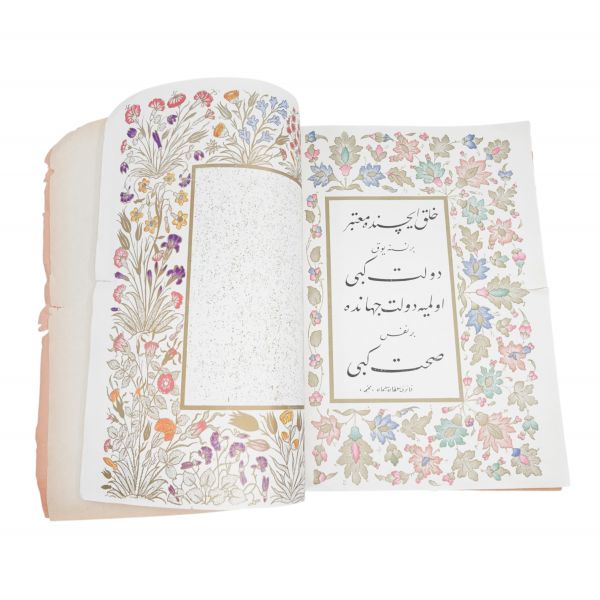 خلق ایچنده معتبر
بر نسنه یوق
دولت کبی
اولمیه دولت جهانده
بر نفس
صحت کبی